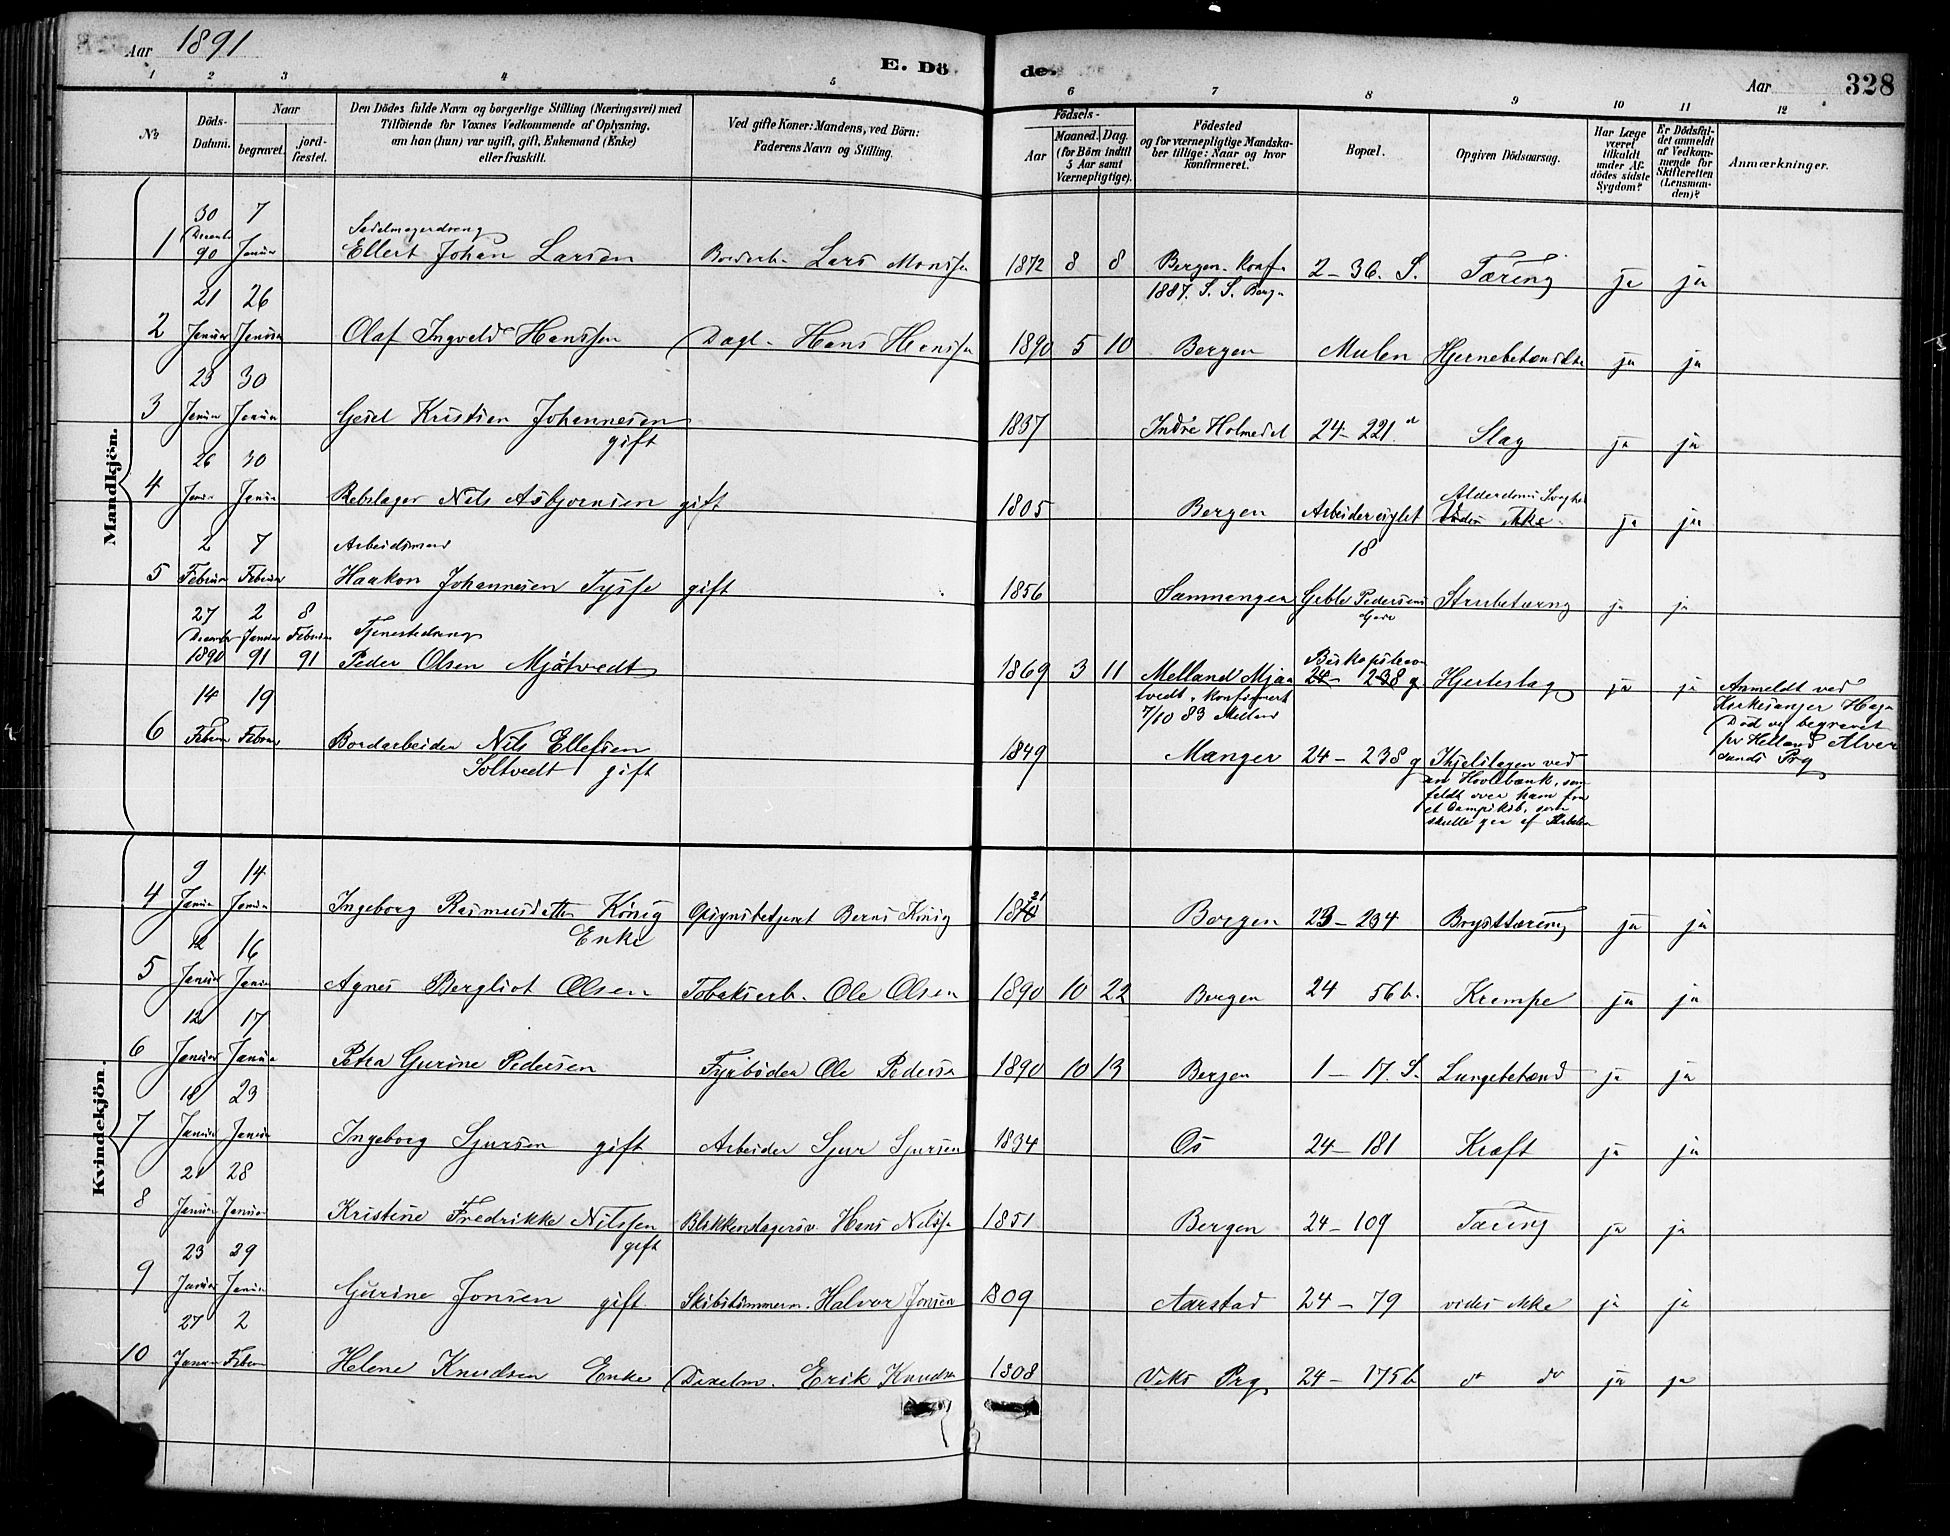 Aar 1891
E. Döde.
Aar
328
1 2 3 4 5 6 7 8 9 10 11 12
No
Döds-Datum.
Naar
begravet.
jord-fæstet.
Den Dödes fulde Navn og borgerlige Stilling (Næringsvei) med
Tilföiende for Voxnes Vedkommende af Oplysning,
om han (hun) var ugift, gift, Enkemand (Enke)
eller fraskilt.
Ved gifte Koner: Mandens, ved Börn:
Faderens Navn og Stilling.
Födsels-
Aar
Maaned. Dag.
(for Börn indtil
5 Aar samt
Værnepligtige).
Födested
og for værnepligtige Mandska-
ber tillige: Naar og hvor
konfirmeret.
Bopæl.
Opgiven Dödsaarsag.
Har Læge
været
tilkaldt
under Af-
dödes sidste
Sygdom?
Er Dödsfal-
det anmeldt
af Vedkom-
mende for
Skifteretten
(Lensman-
den)?
Anmærkninger.
Mandkjön.
30 7
1 Decembr 90 Januar Sadelmagerdreng Ellert Johan Larsen Lars Monsen 1872 8 8 Bergen. Konf. 1887. S. S. Bergen 2-36. S. Tæring ja ja
21 26
2 Januar Januar Olaf Ingvald Hanssen Dagl. Hans Hanssen 1890 5 10 Bergen Mulen Hjernebetændelse ja ja
23 30
3 Januar Januar Gesel Kristian Johannesen gift 1837 Indre Holmedal 24-221 a Slag ja ja
26 30
4 Januar Januar Rebslager Nils Asbjornsen gift 1805 Bergen Arbeiderciglet 18 Alderdoms Svaghed vides ikke ja ja
2 7
5 Februar Februar Arbeidsmand Haakon Johannesen Tysse gift 1856 Samnanger Geble Pedersens Gard Strubetæring ja ja
27 2 8
December 1890 Januar 91 Februar 91 Tjenestedreng Peder Olsen Mjåtvedt 1869 3 11 Melland Mjaatvedt. konfirmert 7/10 83 Melland 24- 238 g Hjerteslag ja ja Anmeldt ved Kirkesanger Død og begravet Alversunds Prg
14 19
6 Februar Februar Bordarbeider Nils Ellefsen Soltvedt gift 1849 Manger 24-238 g Ihjelslagen ved en Hovlebænk, som feldt over ham fra et Dampskib, som skulle
Kvindekjön.
9 14
4 Januar Januar Ingeborg Rasmusdatter König Enke Opsynsbetjent Bernt König 1810 21 Bergen 23-234 Brysttæring ja ja
12 16
5 Januar Januar Agnes Bergliot Olsen Tobaksarb. Ole Olsen 1890 10 22 Bergen 24 56b. Krampe ja ja
12 17
6 Januar Januar Petra Gurine Pedersen Fyrbøder Ole Pedersen 1890 10 13 Bergen 1-17. S. Lungebetænd ja ja
18 23
7 Januar Januar Ingeborg Sjursen gift. Arbeider Sjur Sjursen 1834 Os 24-181 Kræft ja ja
21 28
8 Januar Januar Kristine Fredrikke Nilssen gift Blikkenslagersv. Hans Nilssen 1851 Bergen 24-109 Tæring ja ja
23 29
9 Januar Januar Gurine Jonsen gift. Skibstømmerm. Halvor Jonsen 1809 Aarstad 24-79 vides ikke ja ja
27 2
10 Januar Februar Helene Knudsen Enke Erik Knudsen 1808 Viks Prg. 24-175b do do ja ja